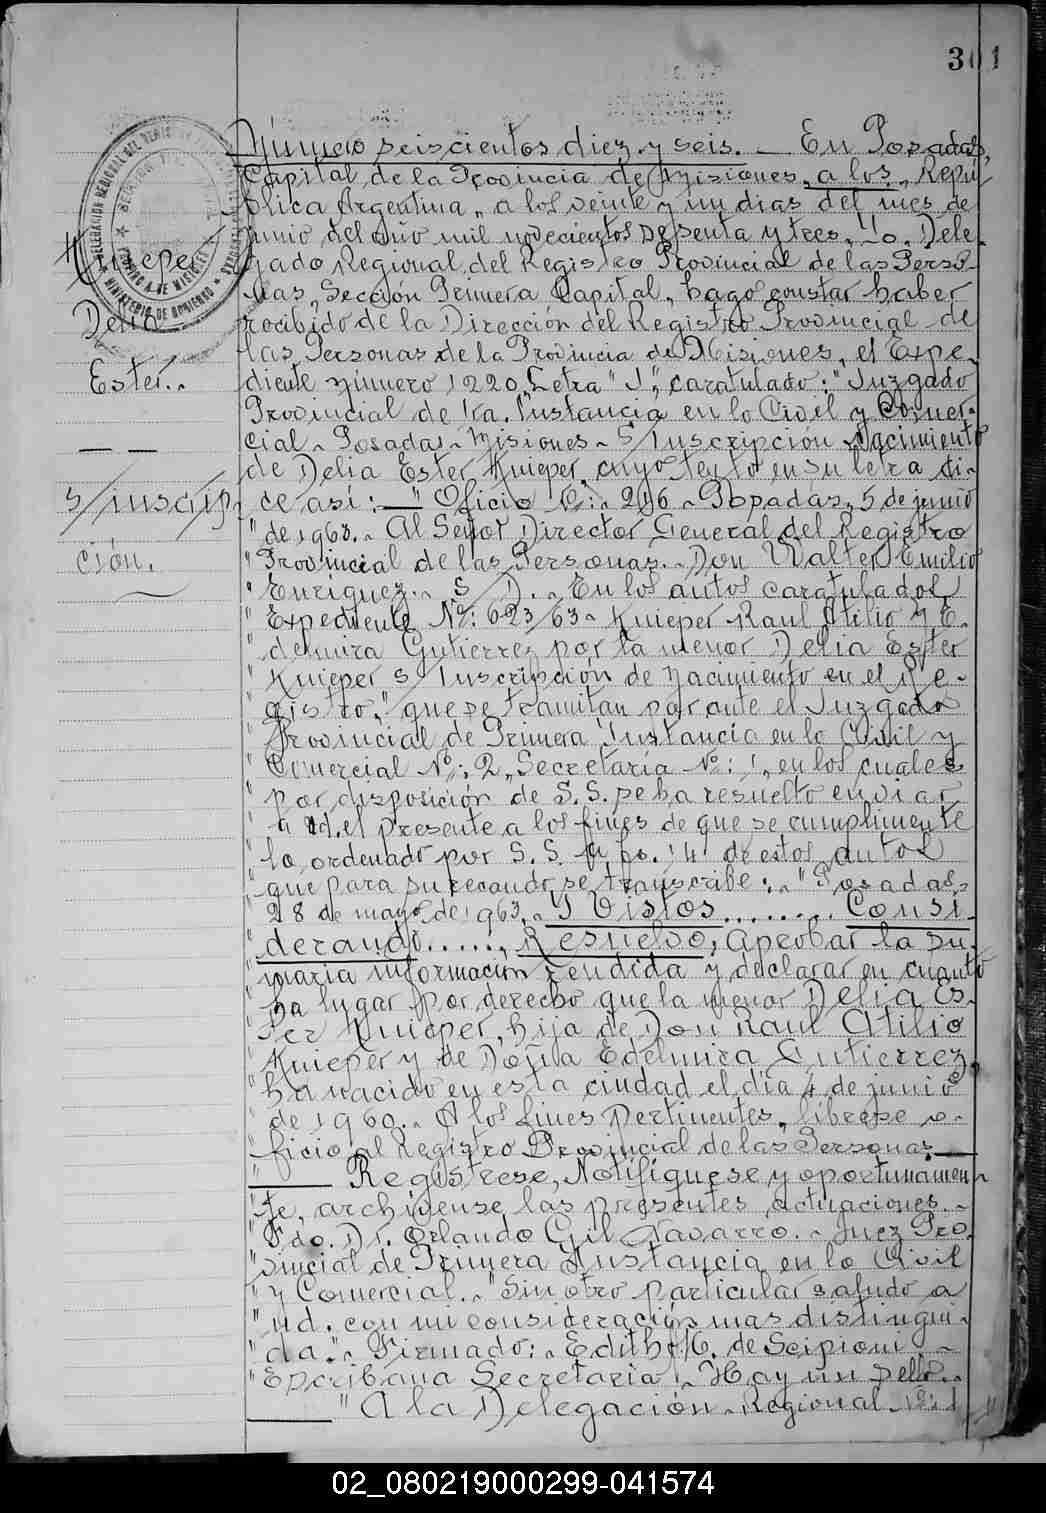 301
DELEGACION REGIONAL DEL REGISTRO
MINISTERIO DE GOBIERNO
Knieper
Delia
Ester.-
s/inscrip
ción.
Número seiscientos diez y seis. — En Posadas,
Capital de la Provincia de Misiones, a los, Repú
blica Argentina, a los veinte y un dias del mes de
junio del año mil novecientos sesenta y tres, Yo, Dele-
gado Regional del Registro Provincial de las Perso-
nas, Sección Primera Capital, hago constar haber
recibido de la Dirección del Registro Provincial de
las Personas de la Provincia de Misiones, el Expe-
diente número 1220, Letra "J", caratulado: "Juzgado
Provincial de 1ra. Instancia en lo Civil y Comer-
cial - Posadas - Misiones - S/Inscripción Nacimiento
de Delia Ester Knieper, cuyo texto en su letra di-
ce asi: — "Oficio Nº: 216 - Posadas, 5 de junio
"de 1963. - Al Señor Director General del Registro
"Provincial de las Personas. - Don Walter Emilio
"Enriquez. - S/D. - En los autos caratulados
"Expediente Nº: 623/63 - Knieper Raul Atilio y E-
"delmira Gutierrez por la menor Delia Ester
"Knieper s/Inscripción de Nacimiento en el Re-
"gistro," que se tramitan por ante el Juzgado
"Provincial de Primera Instancia en lo Civil y
"Comercial Nº: 2, Secretaria Nº: 1, en los cuales
"por disposición de S.S. se ha resuelto enviar
"a Ud. el presente a los fines de que se cumplimente
"lo ordenado por S.S. a fs. 14 de estos autos
"que para su recaudo se transcribe: - "Posadas,
"28 de mayo de 1963. - Y Vistos ........ Consi
"derando ......, Resuelvo, aprobar la su-
"maria informacion rendida y declarar en cuanto
"ha lugar por derecho que la menor Delia Es-
"ter Knieper, hija de Don Raul Atilio
"Knieper y de Doña Edelmira Gutierrez,
"ha nacido en esta ciudad el día 4 de junio
"de 1960. - A los fines pertinentes, librese o-
"ficio al Registro Provincial de las Personas.—
"—— Registrese, Notifiquese y oportunamen-
"te, archivense las presentes actuaciones. -
"Fdo. Dr. Orlando Gil Navarro. - Juez Pro
"vincial de Primera Instancia en lo Civil
"y Comercial. - "Sin otro particular saludo a
"Ud. con mi consideración mas distingui-
"da." - Firmado: - Edith M. de Scipioni -
"Escribana Secretaria. - Hay un sello. -
—— "A la Delegación Regional Nº: 1
02_080219000299-041574